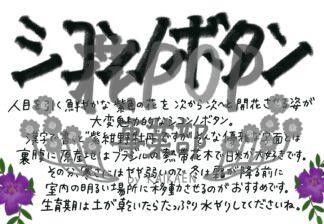 シコンノボタン
人目を引く鮮やかな紫色の花を次から次へと開花させる姿が
大変魅力的なシコンノボタン。
漢字で書くと"紫紺野牡丹"ですが
裏腹に原産地はブラジルの熱帯花木で日光が大好きです。
その分、寒さにはやや弱いので冬は霜が降りる前に
室内の明るい場所に移動させるのがおすすめです。
生育期は土が乾いたらたっぷり水やりしてくださいね。
花POP